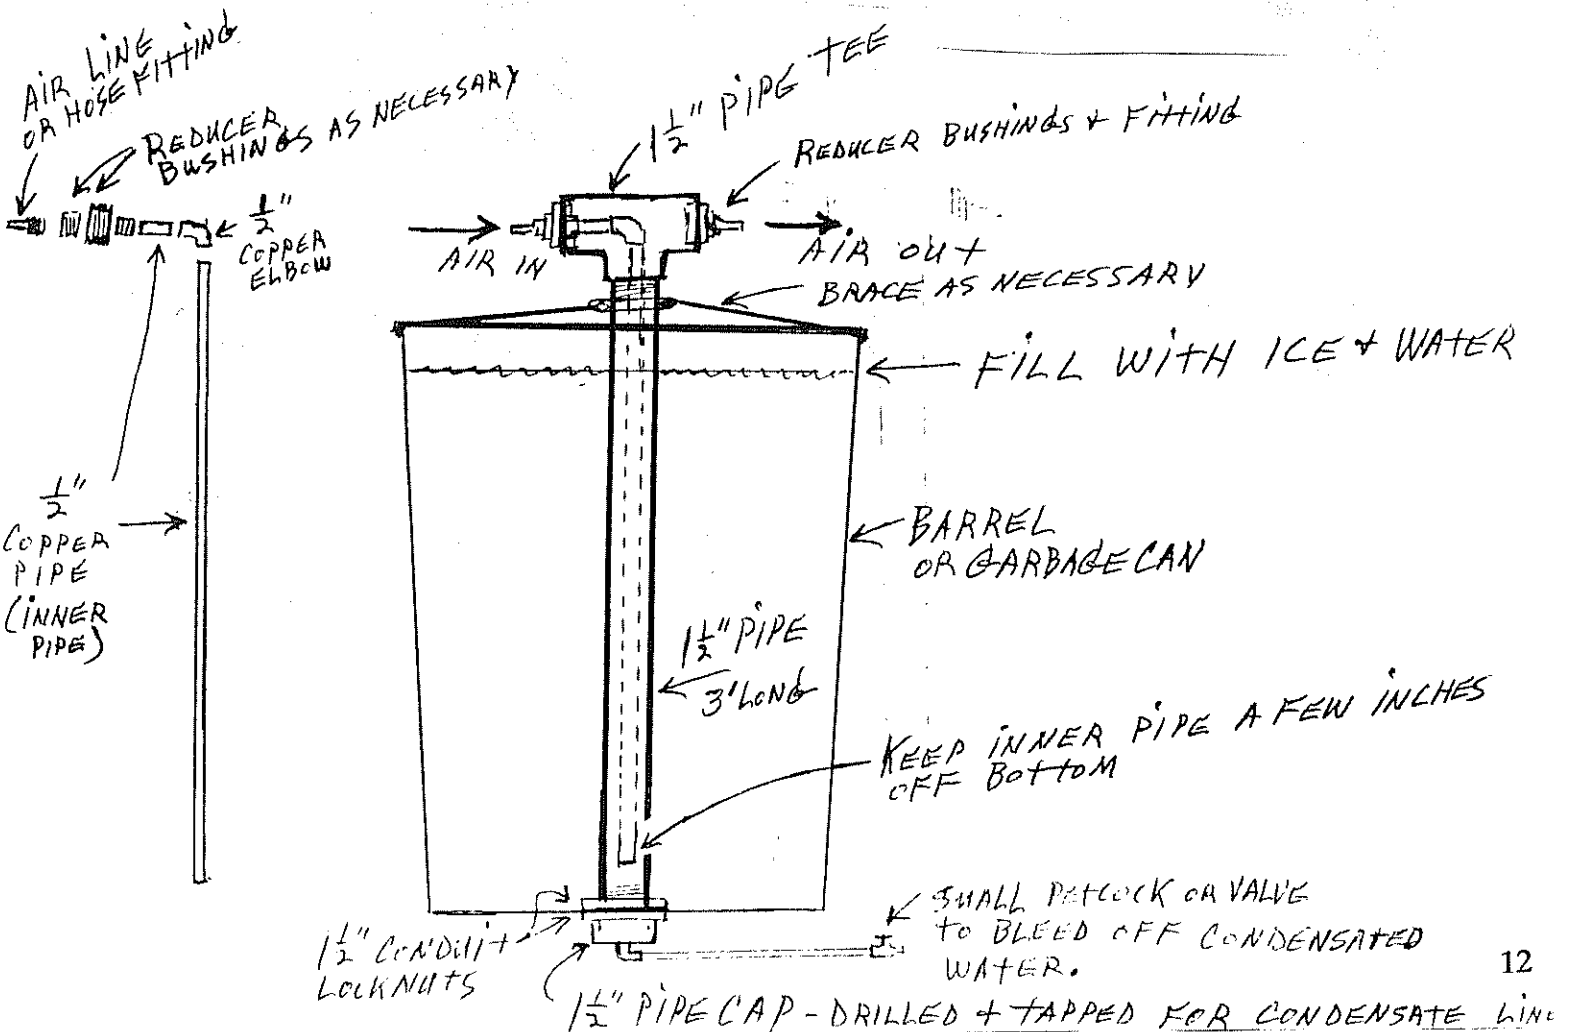 AIR LINE
OR HOSE FITTING
REDUCER
BUSHINGS AS NECESSARY
1/2"
COPPER
ELBOW
1/2"
COPPER
PIPE
(INNER
PIPE)
1 1/2" PIPE TEE
REDUCER BUSHINGS & FITTING
AIR IN
AIR OUT
BRACE AS NECESSARY
FILL WITH ICE & WATER
BARREL
OR GARBAGE CAN
1 1/2" PIPE
3' LONG
KEEP INNER PIPE A FEW INCHES
OFF BOTTOM
SMALL PETCOCK OR VALVE
TO BLEED OFF CONDENSATED
WATER.
1 1/2" CONDUIT
LOCKNUTS
1 1/2" PIPE CAP - DRILLED & TAPPED FOR CONDENSATE LINE
12